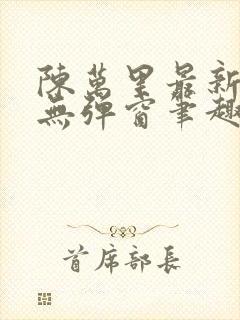 陳萬里最新
無彈窗筆趣
首席部長